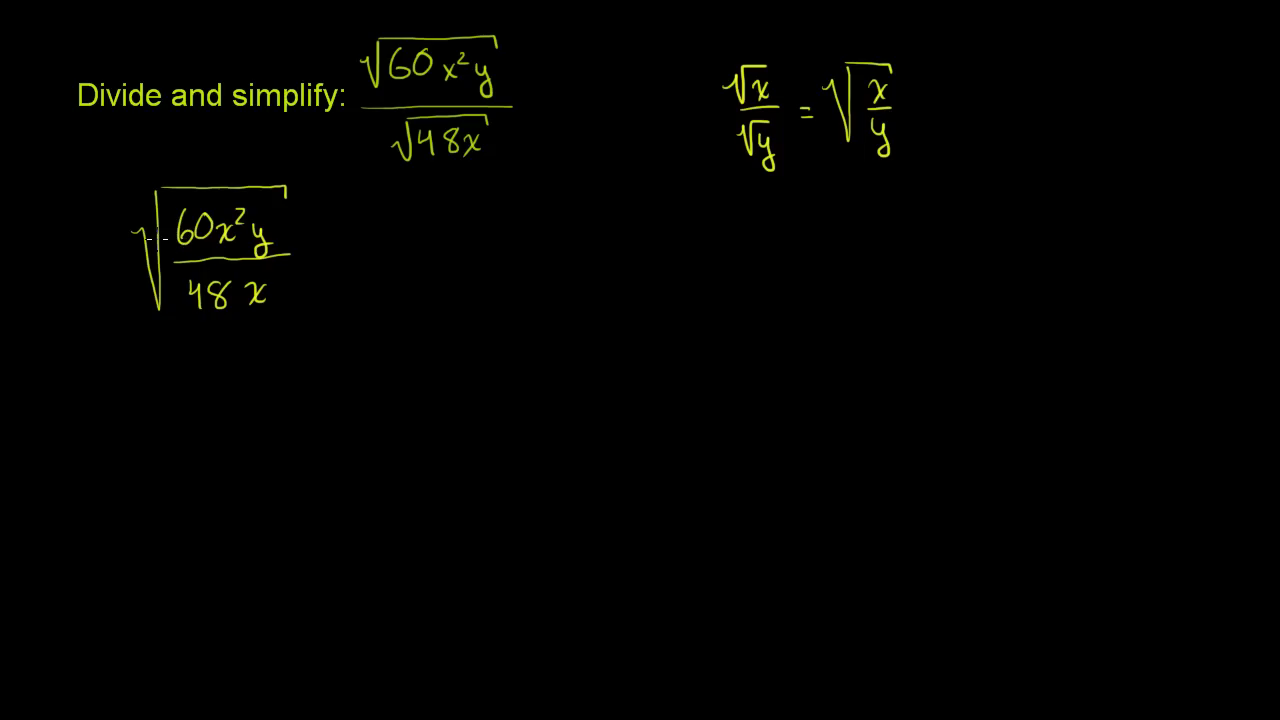 Divide and simplify: √(60x²y) / √(48x)
√x / √y = √(x/y)
√(60x²y / 48x)